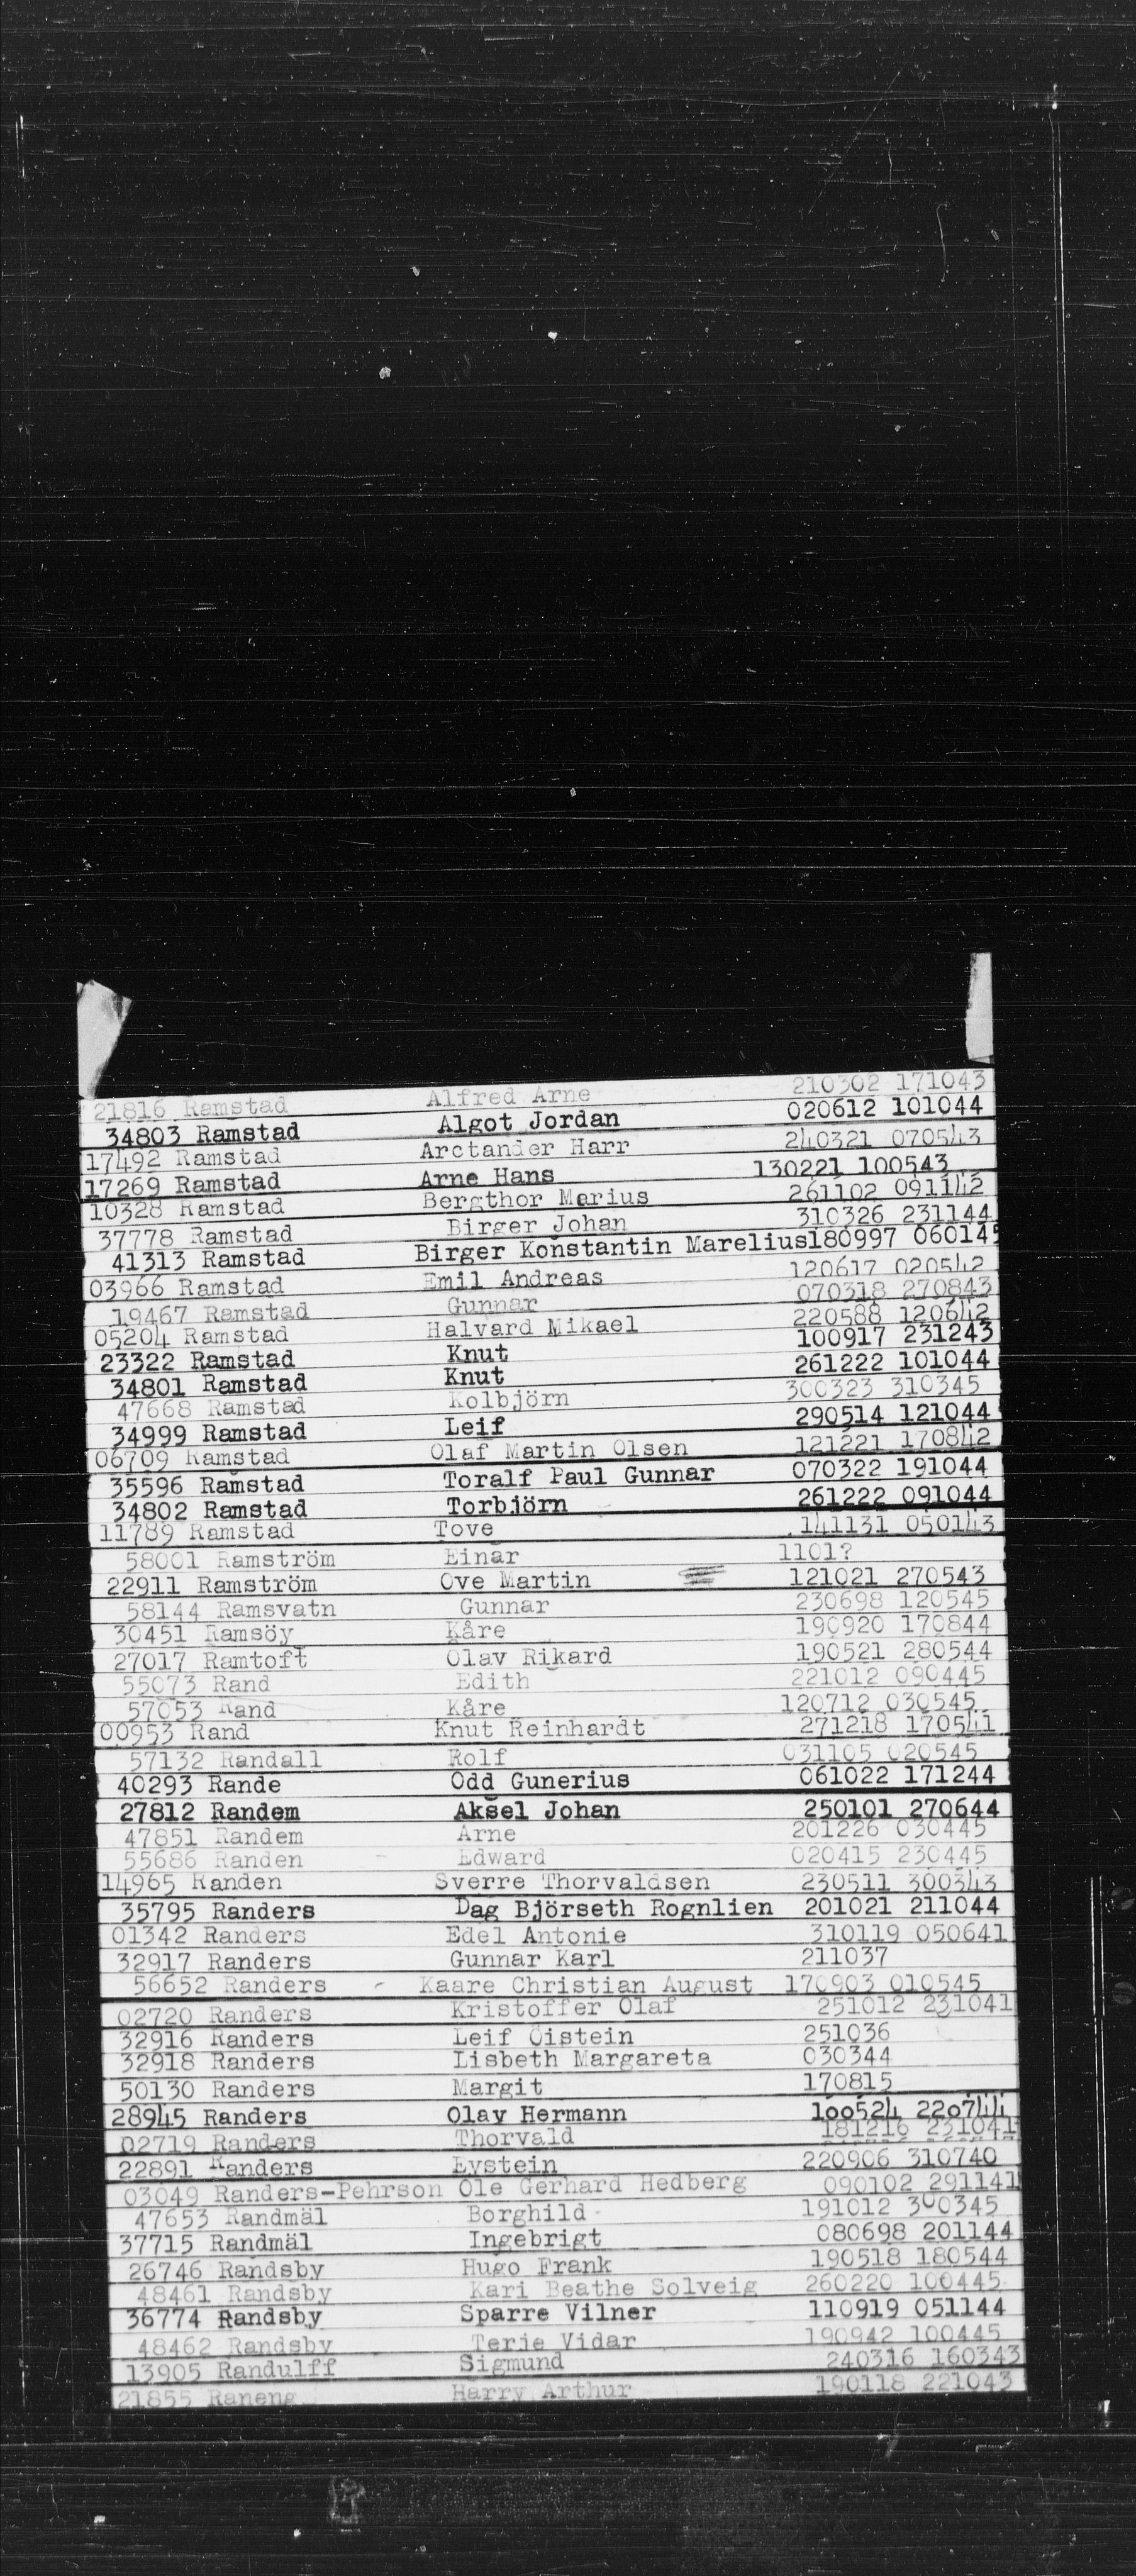 21816 Ramstad Alfred Arne 210302 171043
34803 Ramstad Algot Jordan 020612 101044
17492 Ramstad Arctander Harr 240321 070543
17269 Ramstad Arne Hans 130221 100543
10328 Ramstad Bergthor Marius 261102 091142
37778 Ramstad Birger Johan 310326 231144
41313 Ramstad Birger Konstantin Marelius180997 060145
03966 Ramstad Emil Andreas 120617 020542
19467 Ramstad Gunnar 070318 270843
05204 Ramstad Halvard Mikael 220588 120642
23322 Ramstad Knut 100917 231243
34801 Ramstad Knut 261222 101044
47668 Ramstad Kolbjörn 300323 310345
34999 Ramstad Leif 290514 121044
06709 Ramstad Olaf Martin Olsen 121221 170842
35596 Ramstad Toralf Paul Gunnar 070322 191044
34802 Ramstad Torbjörn 261222 091044
11789 Ramstad Tove 141131 050143
58001 Ramström Einar 1101?
22911 Ramström Ove Martin 121021 270543
58144 Ramsvatn Gunnar 230698 120545
30451 Ramsöy Kåre 190920 170844
27017 Ramtoft Olav Rikard 190521 280544
55073 Rand Edith 221012 090445
57053 Rand Kåre 120712 030545
00953 Rand Knut Reinhardt 271218 170541
57132 Randall Rolf 031105 020545
40293 Rande Odd Gunerius 061022 171244
27812 Randem Aksel Johan 250101 270644
47851 Randem Arne 201226 030445
55686 Randen Edward 020415 230445
14965 Randen Sverre Thorvaldsen 230511 300343
35795 Randers Dag Björseth Rognlien 201021 211044
01342 Randers Edel Antonie 310119 050641
32917 Randers Gunnar Karl 211037
56652 Randers Kaare Christian August 170903 010545
02720 Randers Kristoffer Olaf 251012 231041
32916 Randers Leif Oistein 251036
32918 Randers Lisbeth Margareta 030344
50130 Randers Margit 170815
28945 Randers Olav Hermann 100524 220744
02719 Randers Thorvald 181216 231041
22891 Randers Eystein 220906 310740
03049 Randers-Pehrson Ole Gerhard Hedberg 090102 291141
47653 Randmäl Borghild 191012 300345
37715 Randmäl Ingebrigt 080698 201144
26746 Randsby Hugo Frank 190518 180544
48461 Randsby Kari Beathe Solveig 260220 100445
36774 Randsby Sparre Vilner 110919 051144
48462 Randsby Terje Vidar 190942 100445
13905 Randulff Sigmund 240316 160343
21855 Raneng Harry Arthur 190118 221043